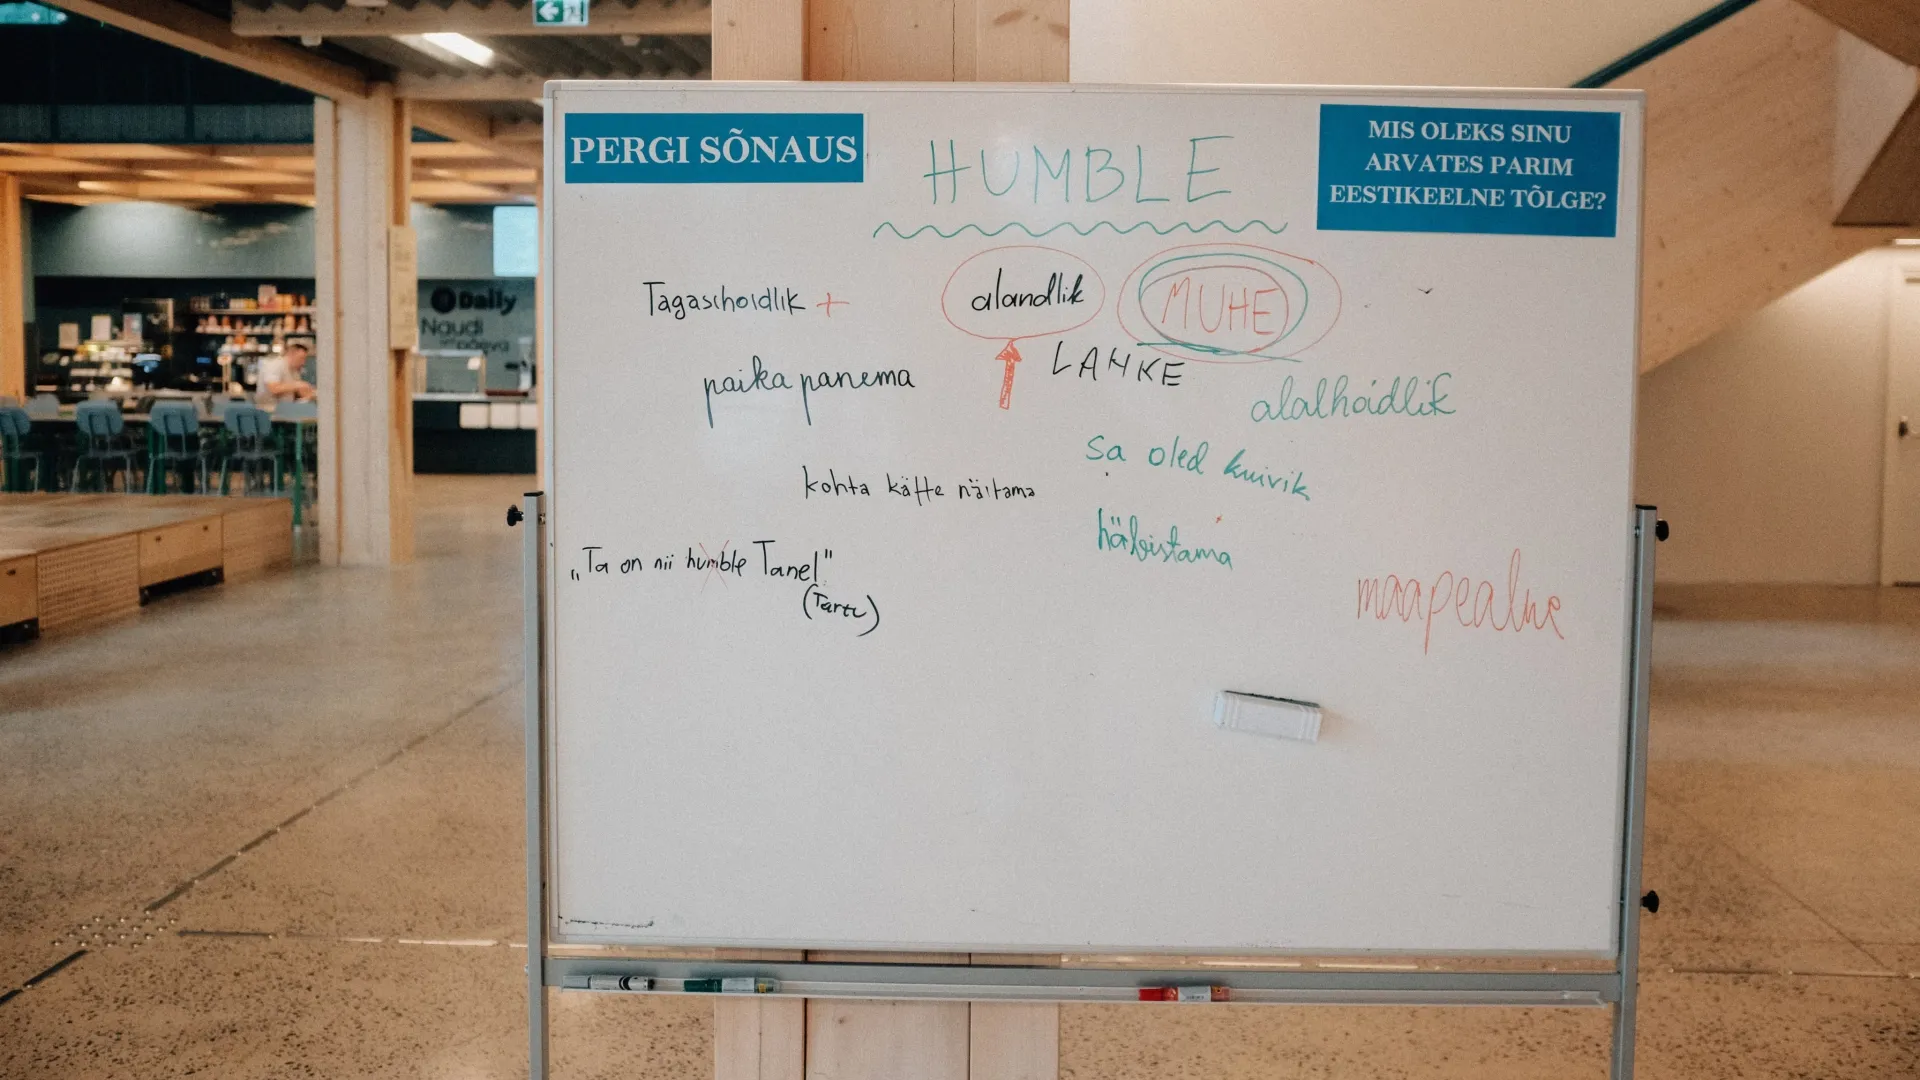 PERGI SÕNAUS
HUMBLE
MIS OLEKS SINU
ARVATES PARIM
EESTIKEELNE TÕLGE?
Tagasihoidlik +
alandlik
MUHE
LAHKE
paika panema
alalhoidlik
sa oled kuivik
kohta kätte näitama
häbistama
„Ta on nii humble Tanel"
(Tartu)
maapealne
Daily
Naudi
päeva